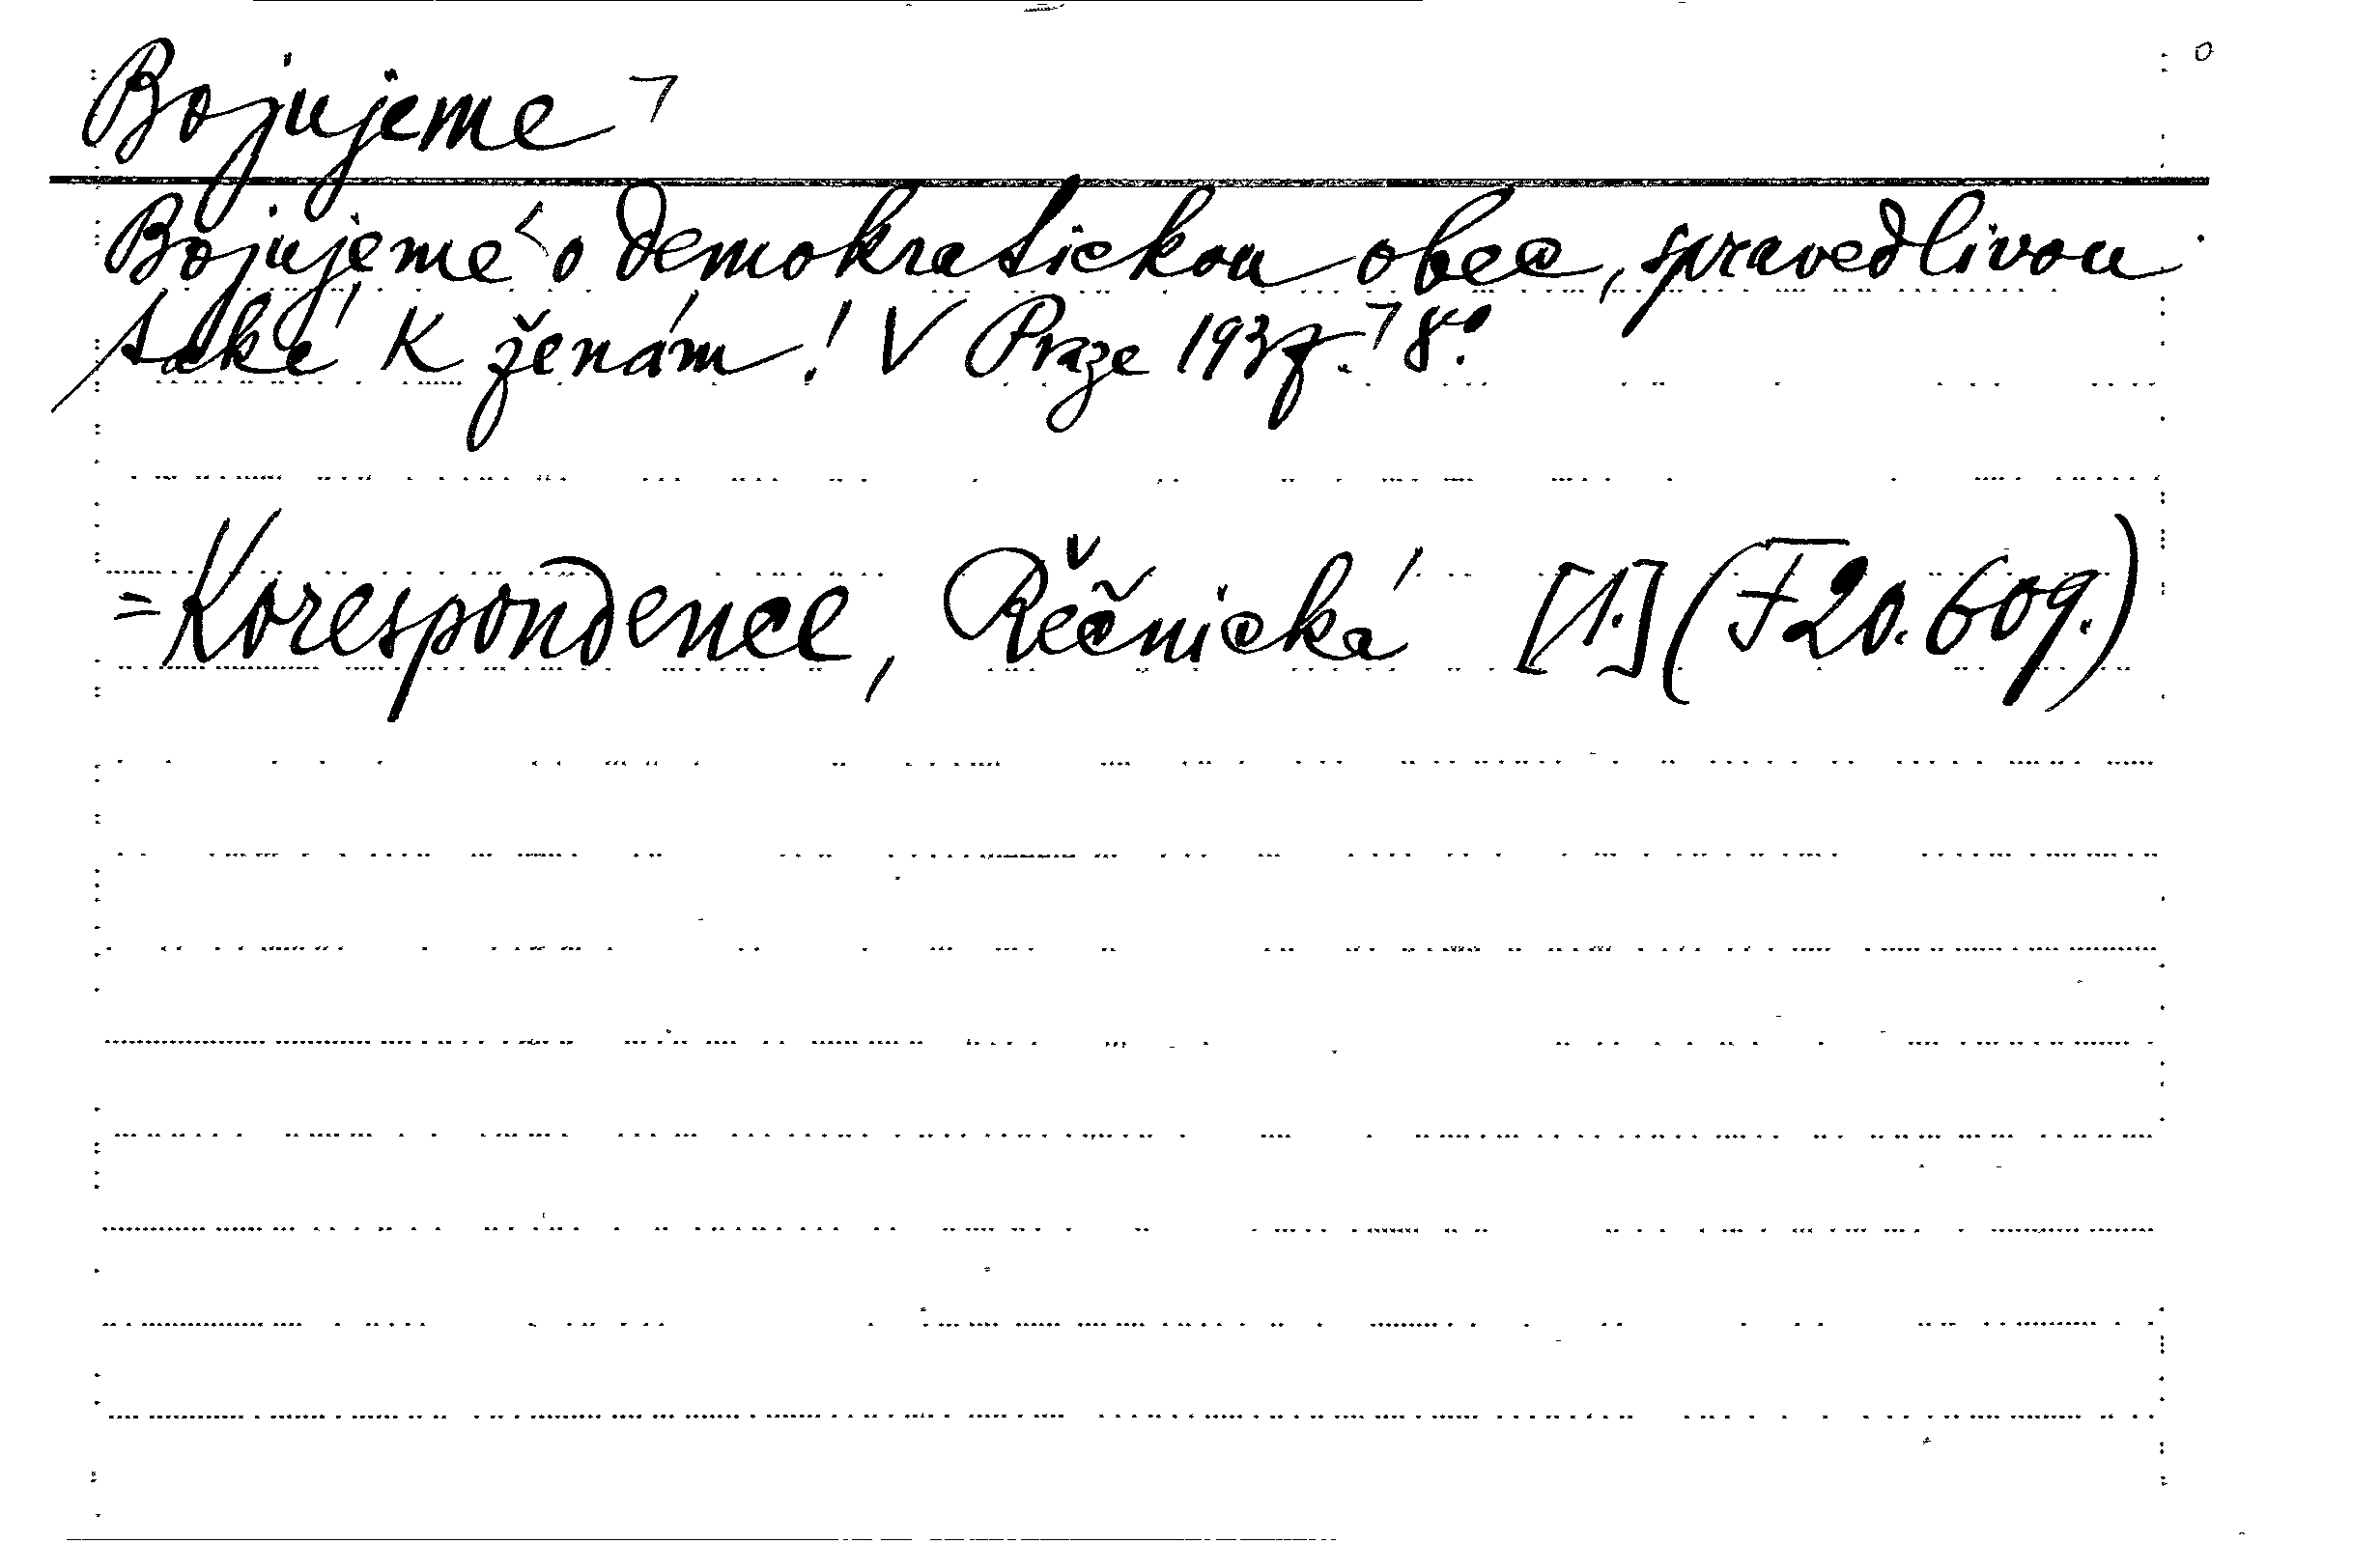 Bojujeme ¬
Bojujeme o demokratickou obec, spravedlivou
také k ženám! V Praze 1937. 8°.
=Korespondence, Řečnická [1.] (F20.609.)